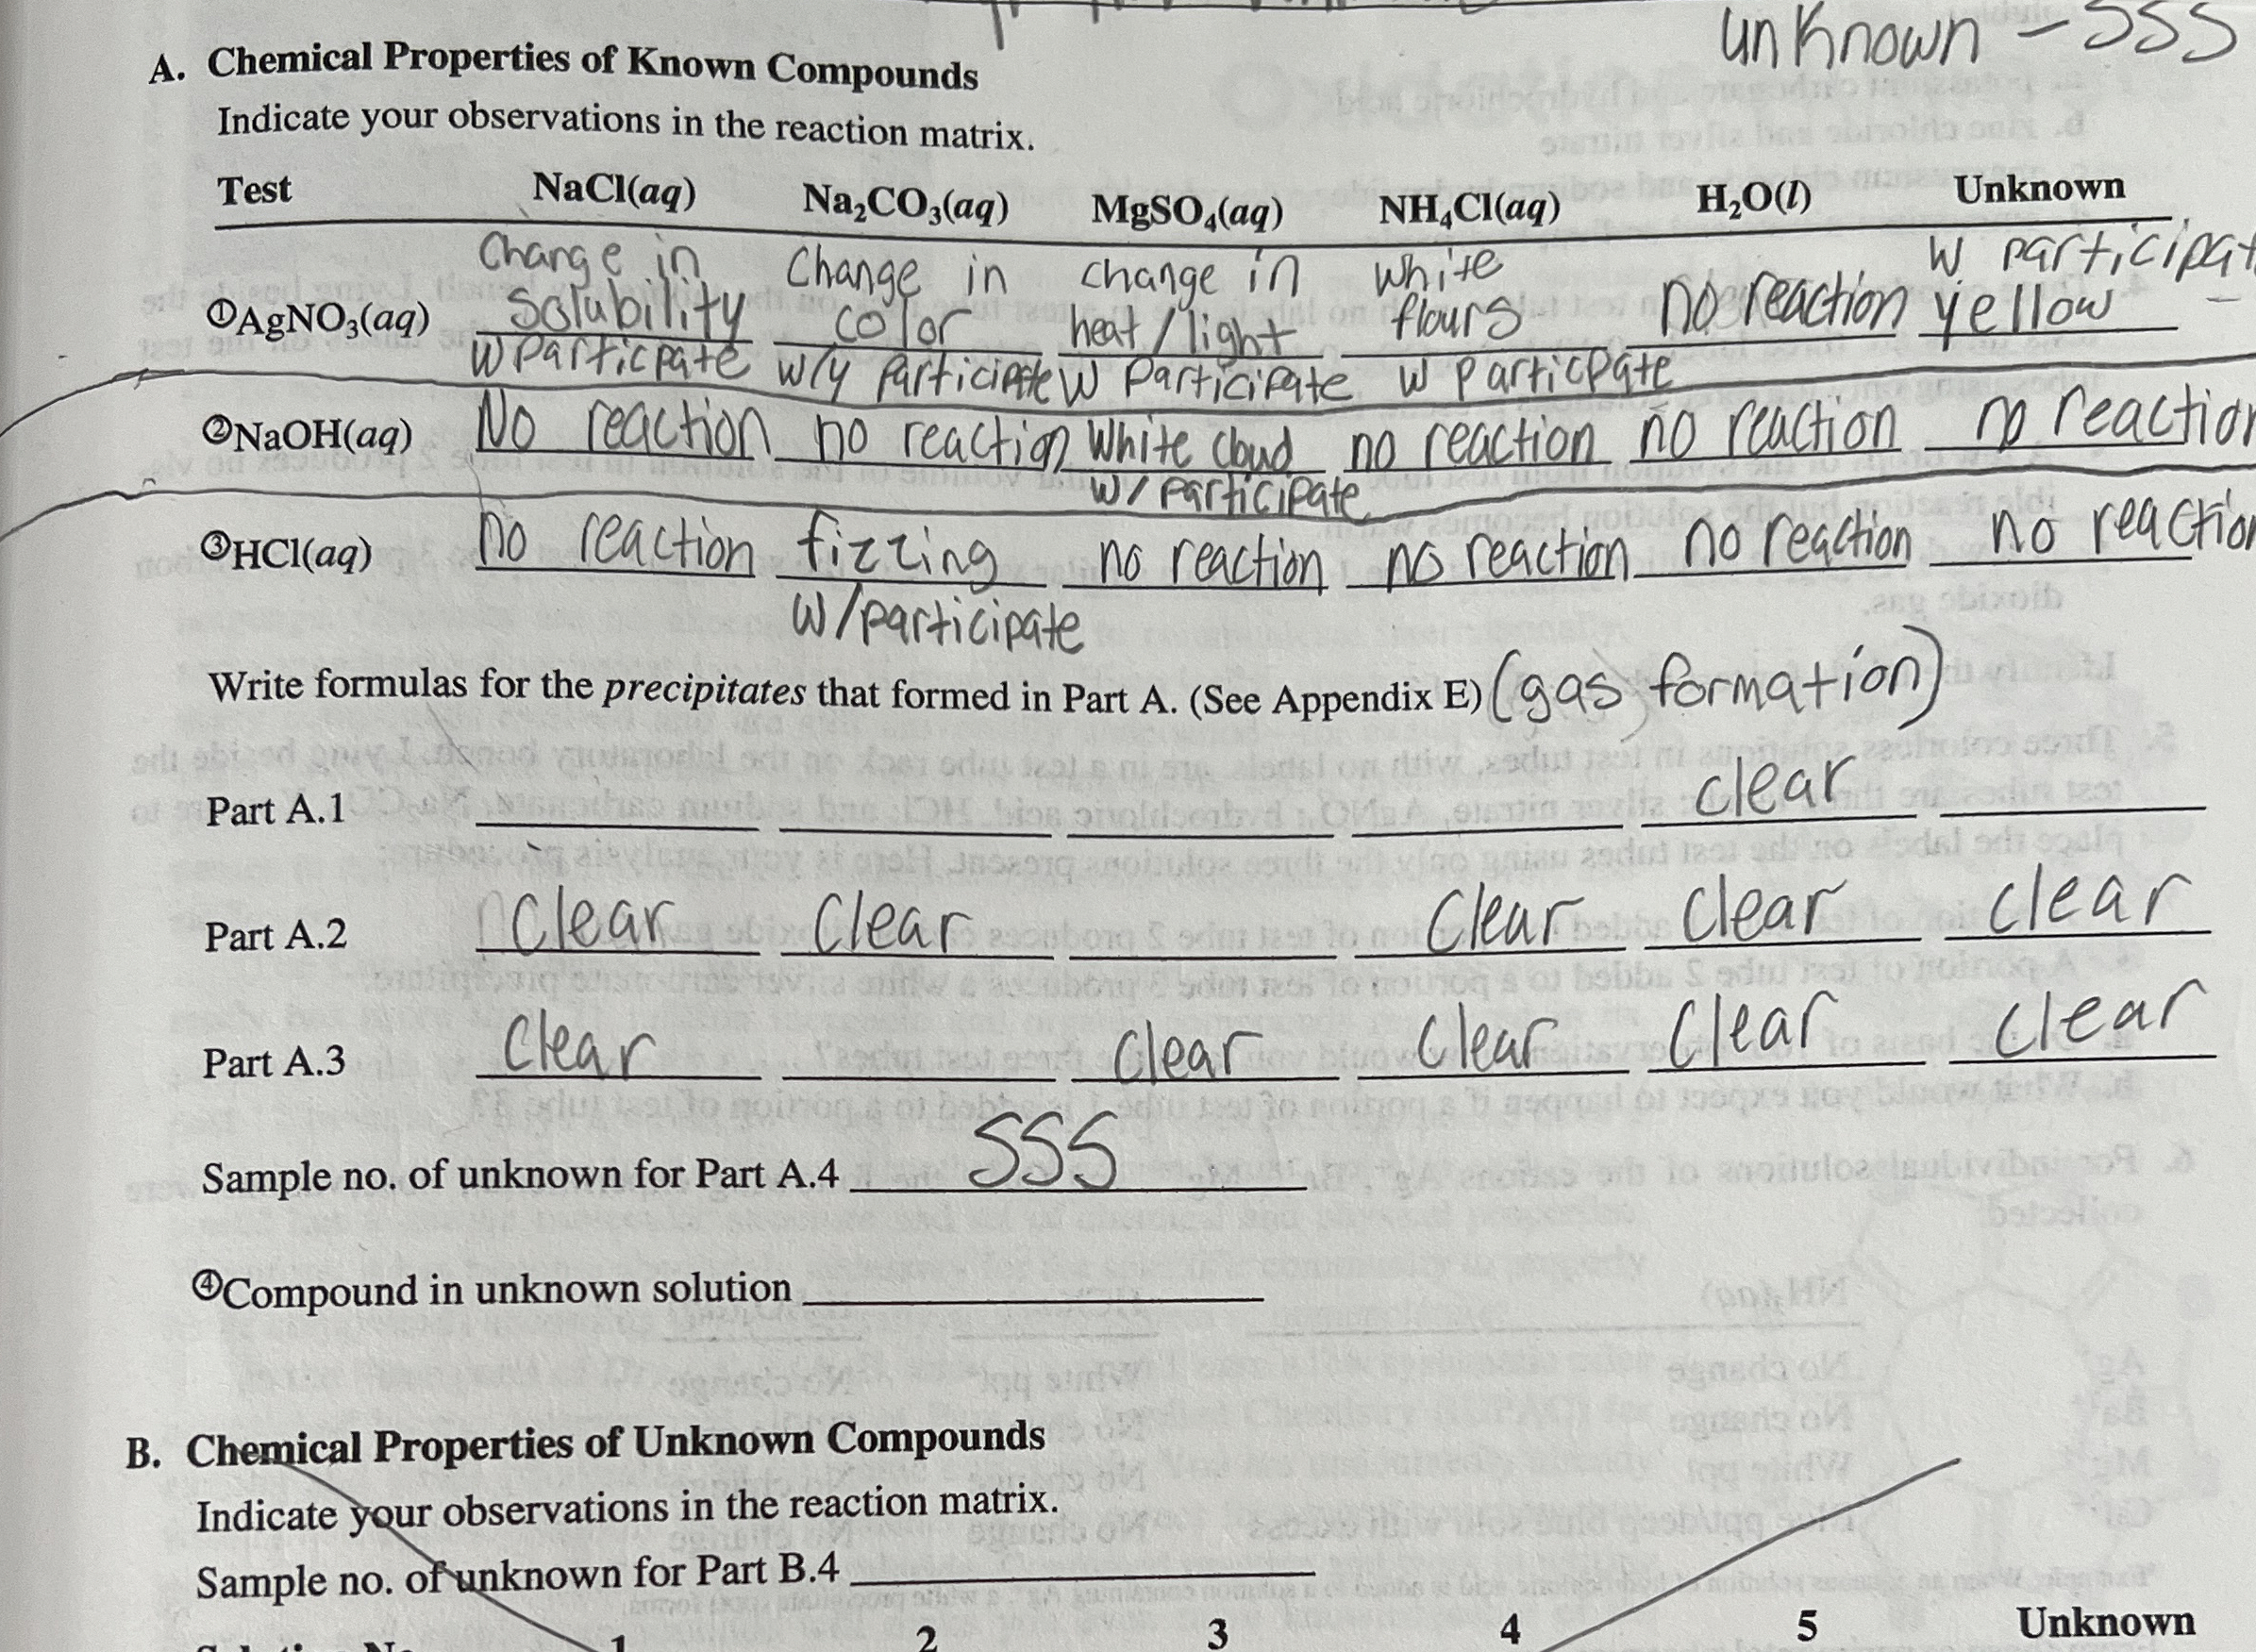 unknown - SSS
A. Chemical Properties of Known Compounds
Indicate your observations in the reaction matrix.
Test NaCl(aq) Na₂CO₃(aq) MgSO₄(aq) NH₄Cl(aq) H₂O(l) Unknown
Change in Change in change in white W participat
①AgNO₃(aq) Solubility color heat/light flours no reaction yellow -
W Particpate w/y Participate W Participate W Particpate
②NaOH(aq) No reaction no reaction White cloud no reaction no reaction no reaction
w/ participate
③HCl(aq) no reaction fizzing no reaction no reaction no reaction no reaction
w/participate
Write formulas for the precipitates that formed in Part A. (See Appendix E) (gas formation)
Part A.1 clear
Part A.2 Clear Clear Clear Clear Clear
Part A.3 Clear Clear Clear Clear Clear
Sample no. of unknown for Part A.4 SSS
④Compound in unknown solution
B. Chemical Properties of Unknown Compounds
Indicate your observations in the reaction matrix.
Sample no. of unknown for Part B.4
1 2 3 4 5 Unknown